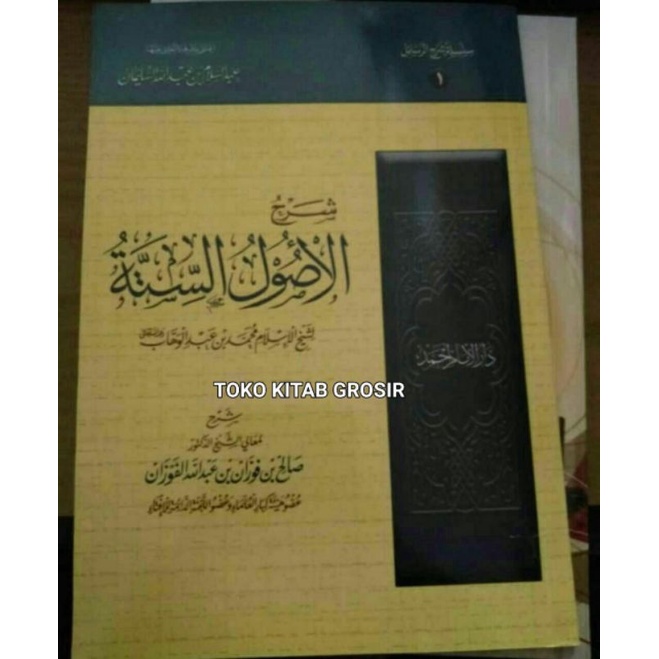 سلسلة شرح الرسائل
١
عبد السلام بن عبد الله السليمان
شَرْحُ
الأُصُولُ السِّتَّةُ
لشيخ الإسلام محمد بن عبد الوهاب
دار الإمام أحمد
TOKO KITAB GROSIR
شرح
معالي الشيخ الدكتور
صالح بن فوزان بن عبد الله الفوزان
عضو هيئة كبار العلماء وعضو اللجنة الدائمة للإفتاء